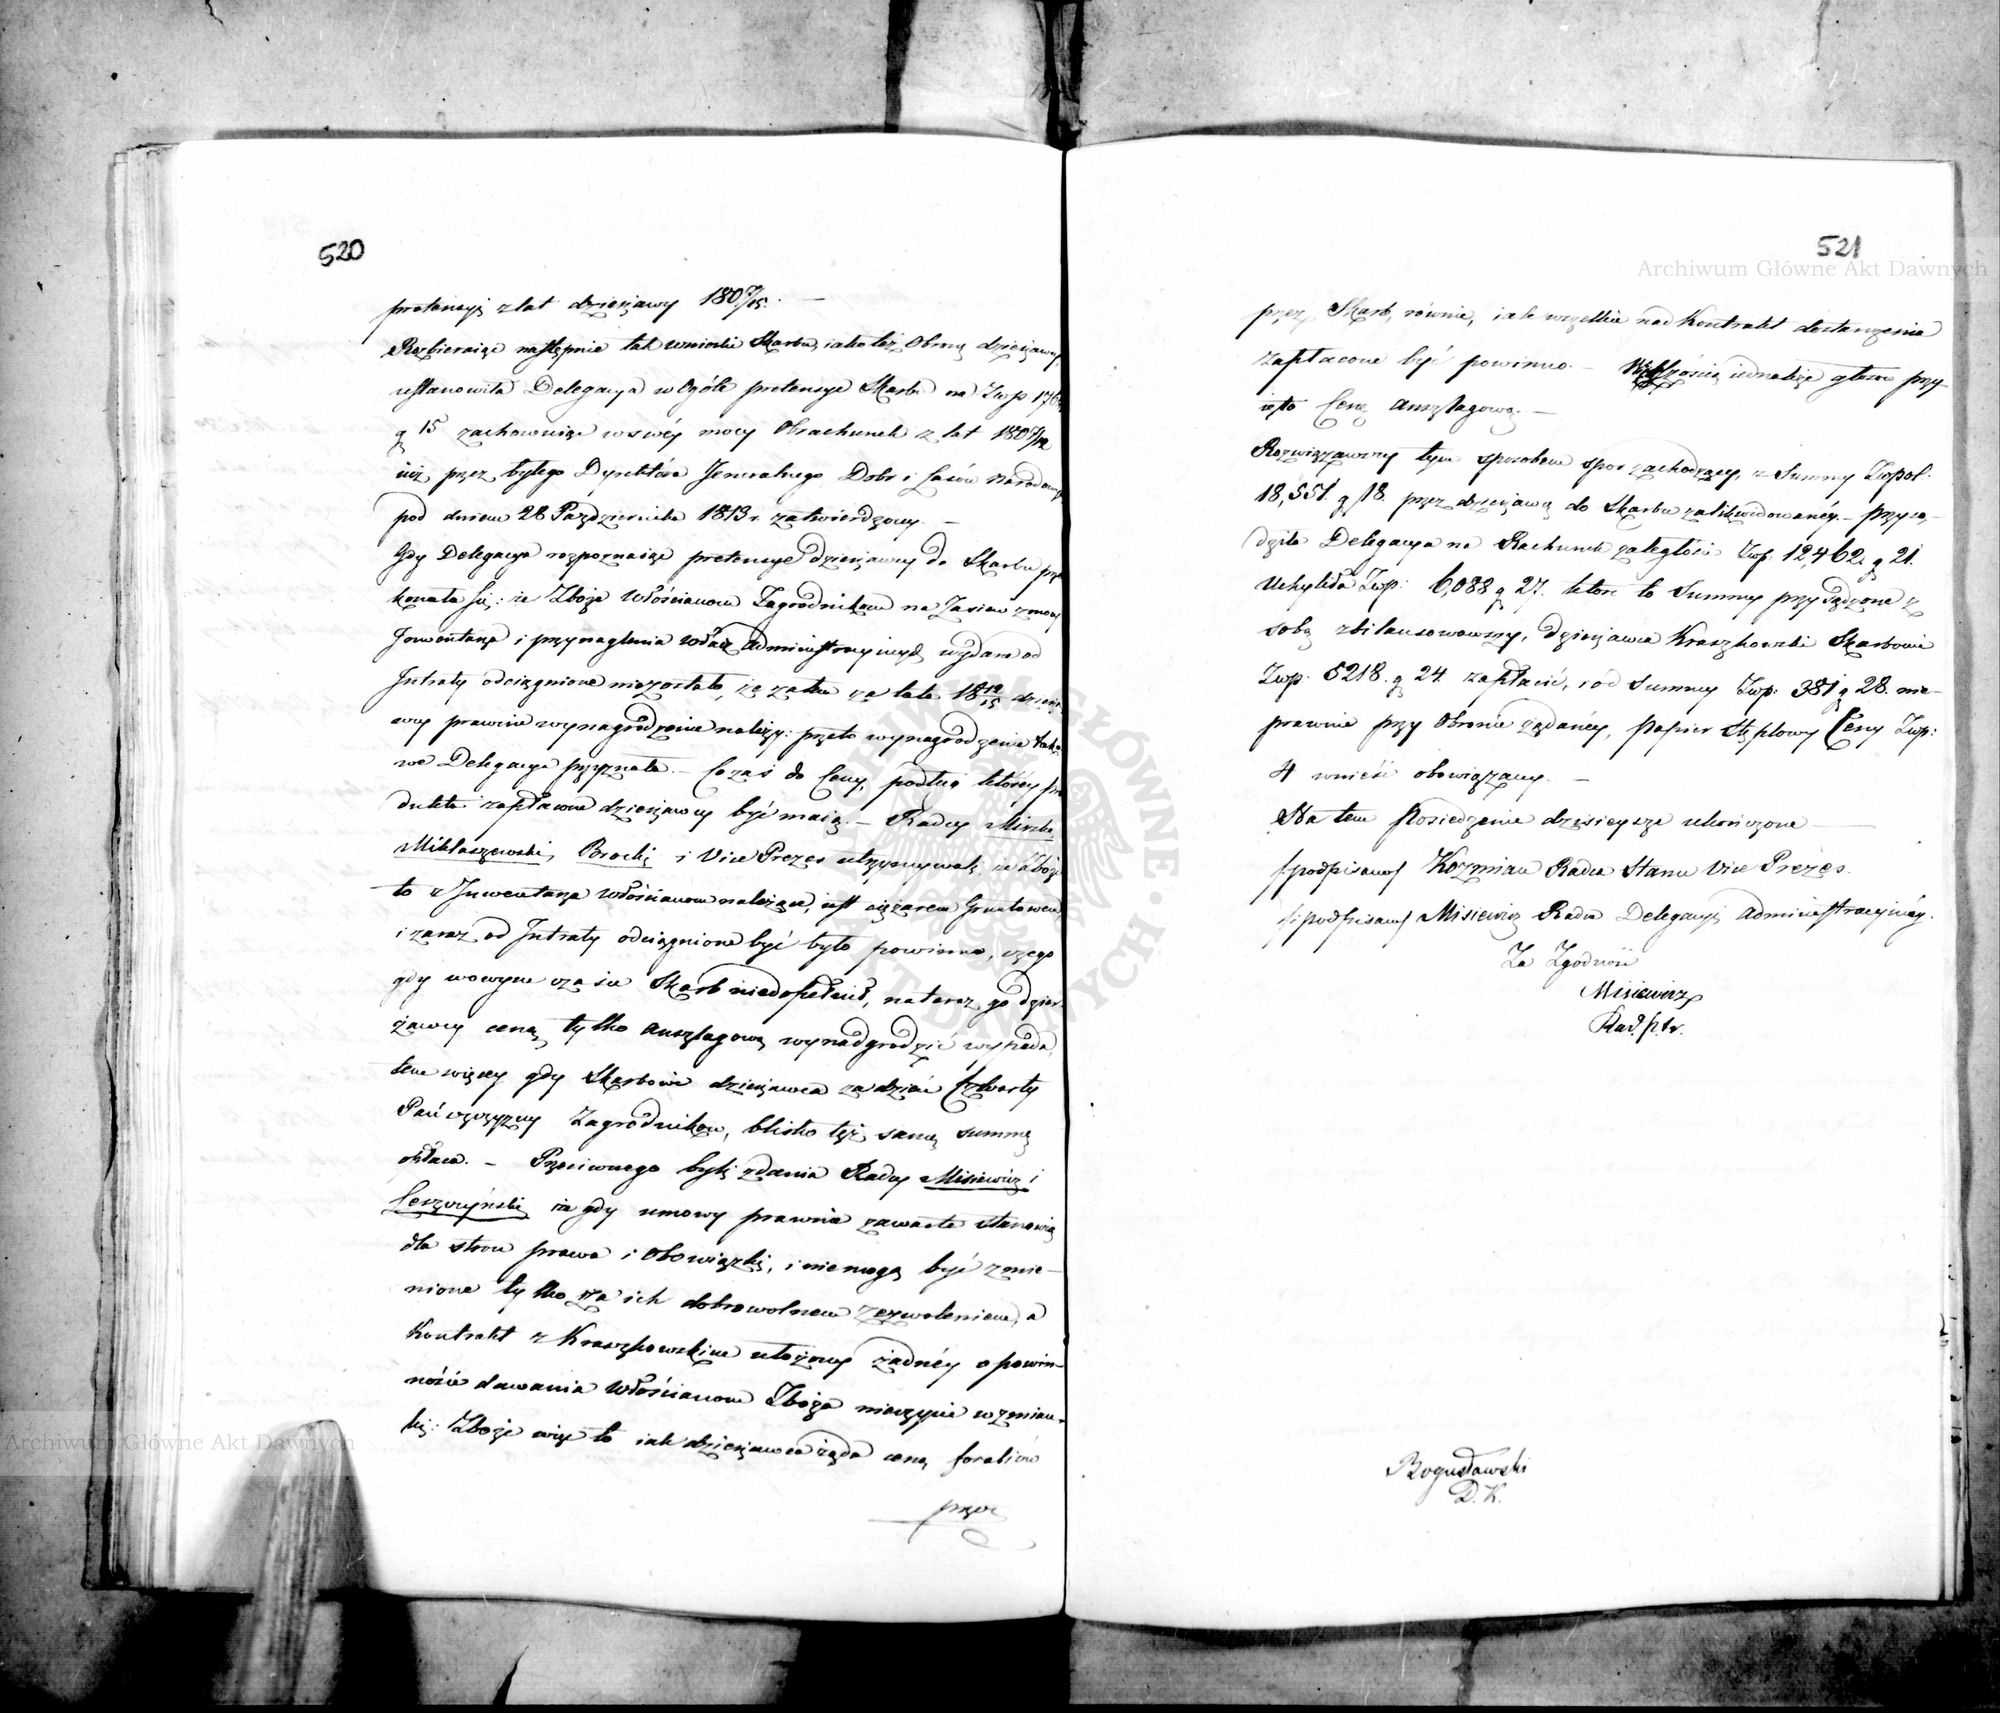 520
pretensyi z lat dzierżawy 180 9/15. —
Rozbieraiąc następnie tak wnioski Skarbu, iako też Obronę dzierżawcy,
ustanowiła Delegacya w Ogóle pretensye Skarbu na Złp 176
g 15 zachowuiąc w swéy mocy Obrachunek z lat 180 9/12
iuż przez byłego Dyrektora Jeneralnego Dóbr i Lasów Narodowych
pod dniem 28 Października 1813 r. zatwierdzony. —
Gdy Delegacya rozpoznaiąc pretensye dzierżawcy do Skarbu prze
konała się: że Zboże Włościanom Zagrodnikom na Zasiew z mocy
Jnwentarza i przynaglenia władz administracyinych wydane od
Jntraty odciągnione niezostało, że zatem za lata 18 12/15 dzierża
wcy prawnie wynagrodzenie należy: przeto wynagrodzenie tako
we Delegacya przyznała. — Co zaś do Ceny, podług któréy pro
dukta zapłacone dzierżawcy być maią. — Radcy Minske
Miklaszewski, Brocki i Vice Prezes utrzymywali, że Zboże
to z Jnwentarza Włościanom należące, iest ciężarem Gruntowem
i zaraz od Jntraty odciągnione być było powinno, czego
gdy w owym czasie Skarb niedopełnił, na teraz go dzier
żawcy ceną tylko anszlagową wynadgrodzić wypada,
tem więcey gdy Skarbowi dzierżawca za dzień Czwarty
Pańszczyzny Zagrodników, blisko też samę summę
opłaca. — Przeciwnego byli zdania Radcy Misiewicz i
Leszczyński że gdy umowy prawnie zawarte stanowią
dla stron prawa i Obowiązki, i niemogą być zmie-
nione tylko za ich dobrowolnem zezwoleniem, a
Kontrakt z Kraszkowskim ułożony żadnéy o powin-
ności dawania Włościanom Zboża nieczyni wzmian-
ki: Zboże więc to iak dzierżawca żąda ceną foraliów
przez
521
przez Skarb, równie, iak wszelkie nad Kontrakt dostarczenia
zapłacone być powinno. — Większością iednakże głosów przy-
ięto Cenę anszlagową. —
Rozwiązawszy tym sposobem spor zachodzący, z Summy Złpol.
18,551. g 18. przez dzierżawcę do Skarbu zalikwidowanéy. — przysą-
dziła Delegacya na Rachunek zaległości Złp. 12,462. g 21.
Uchyliła Złp: 6,088 g 27. które to Summy przysądzone z
sobą zbilansowawszy, dzierżawca Kraszkowski Skarbowi
Złp. 5218. g 24 zapłacić, i od Summy Złp: 381 g 28. nie-
prawnie przy Obronie żądanéy, papier Stęplowy Ceny Złp:
4 wnieść obowiązany. —
Na tem Posiedzenie dzisieysze ukończone —
/podpisano/ Kozmian Radca Stanu Vice Prezes.
/podpisano/ Misiewicz Radca Delegacyi administracyinéy.
Za Zgodność
Misiewicz
Bogusławski
D. K.
Archiwum Główne Akt Dawnych
Archiwum Główne Akt Dawnych